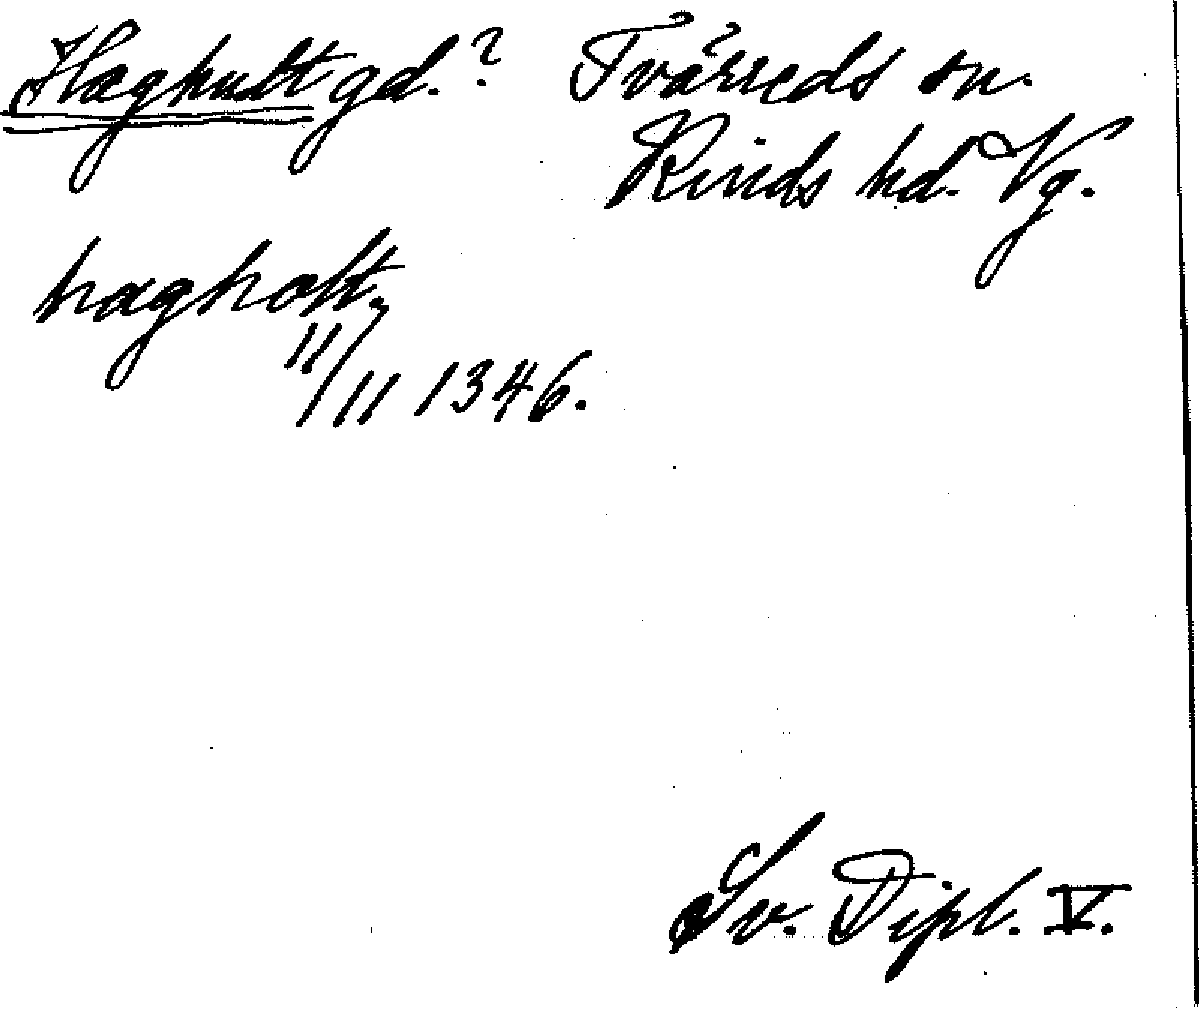 Haghult gd.? Tvärreds sn.
Kinds hd. Vg.
hagholt,
11/11 1346.
Sv. Dipl. V.